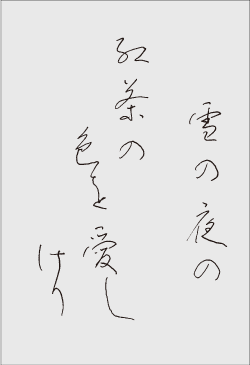 雪の夜の
紅茶の
色を愛し
けり